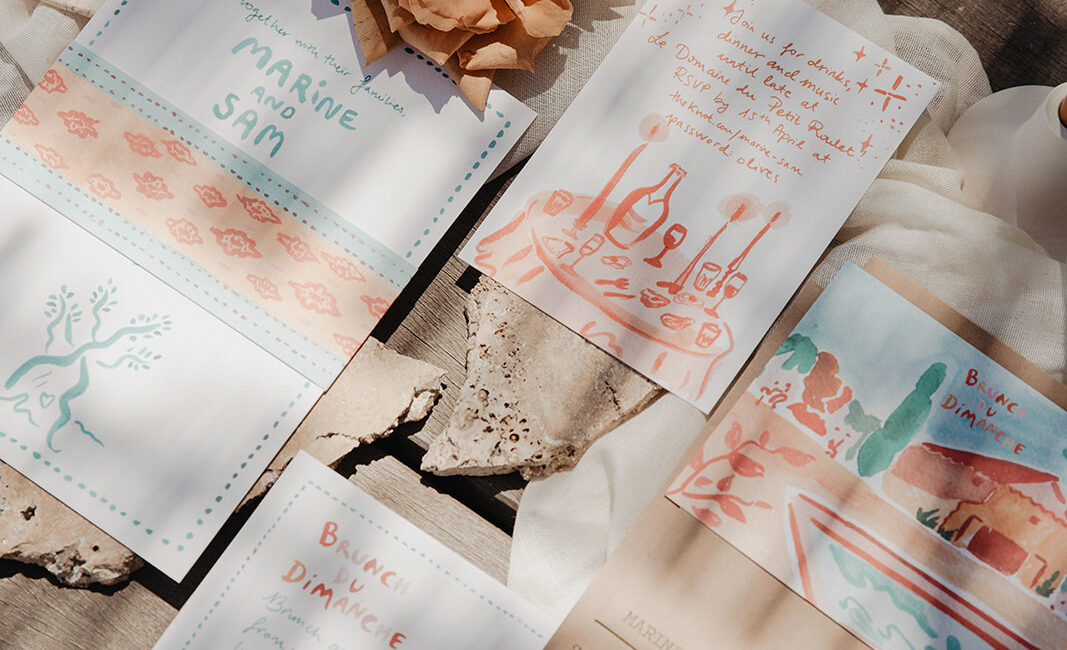 together with their families,
MARINE
AND
SAM
Join us for drinks,
dinner and music
until late at
Le Domaine du Petit Roulet
RSVP by 15th April at
theknot.com/marine-sam
password: olives
BRUNCH
DU
DIMANCHE
BRUNCH
DU
DIMANCHE
Brunch
from
MARIN